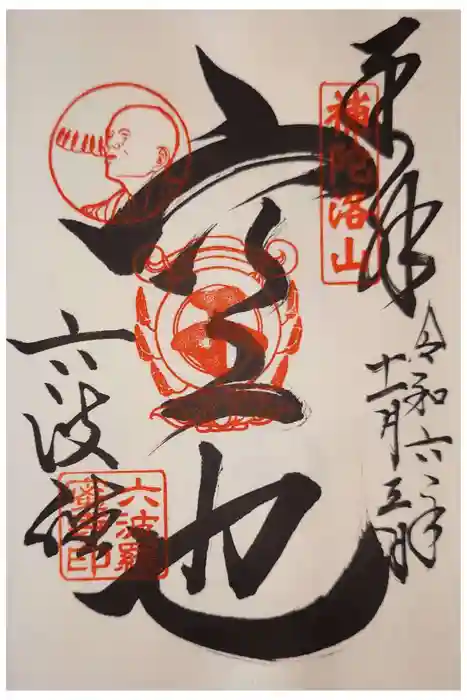 奉拝
補陀洛山
令和六年
十一月五日
空也
六波
六波羅
蜜寺印